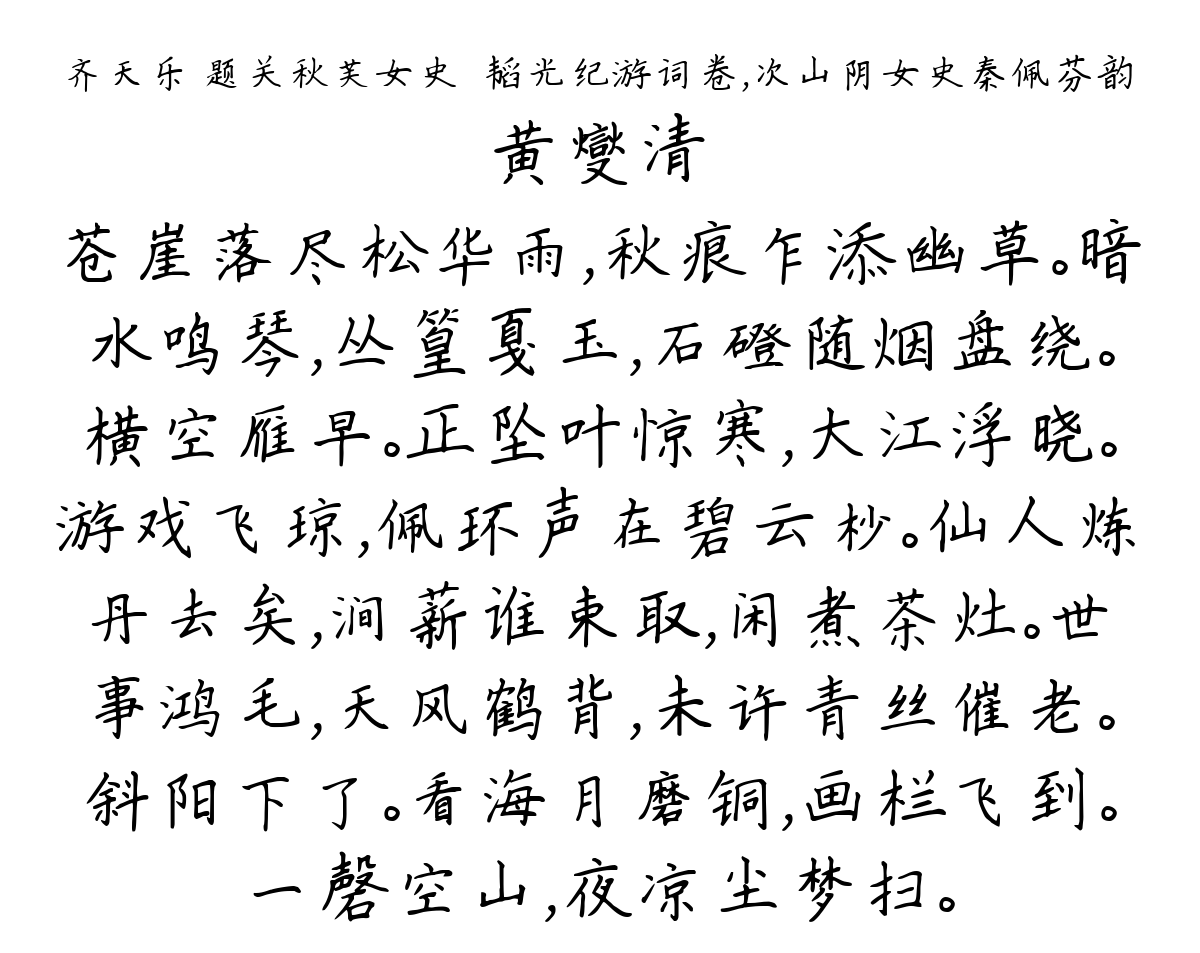 齐天乐 题关秋芙女史 韬光纪游词卷,次山阴女史秦佩芬韵
黄燮清
苍崖落尽松华雨,秋痕乍添幽草。暗
水鸣琴,丛篁戛玉,石磴随烟盘绕。
横空雁早。正坠叶惊寒,大江浮晓。
游戏飞琼,佩环声在碧云杪。仙人炼
丹去矣,涧薪谁束取,闲煮茶灶。世
事鸿毛,天风鹤背,未许青丝催老。
斜阳下了。看海月磨铜,画栏飞到。
一磬空山,夜凉尘梦扫。